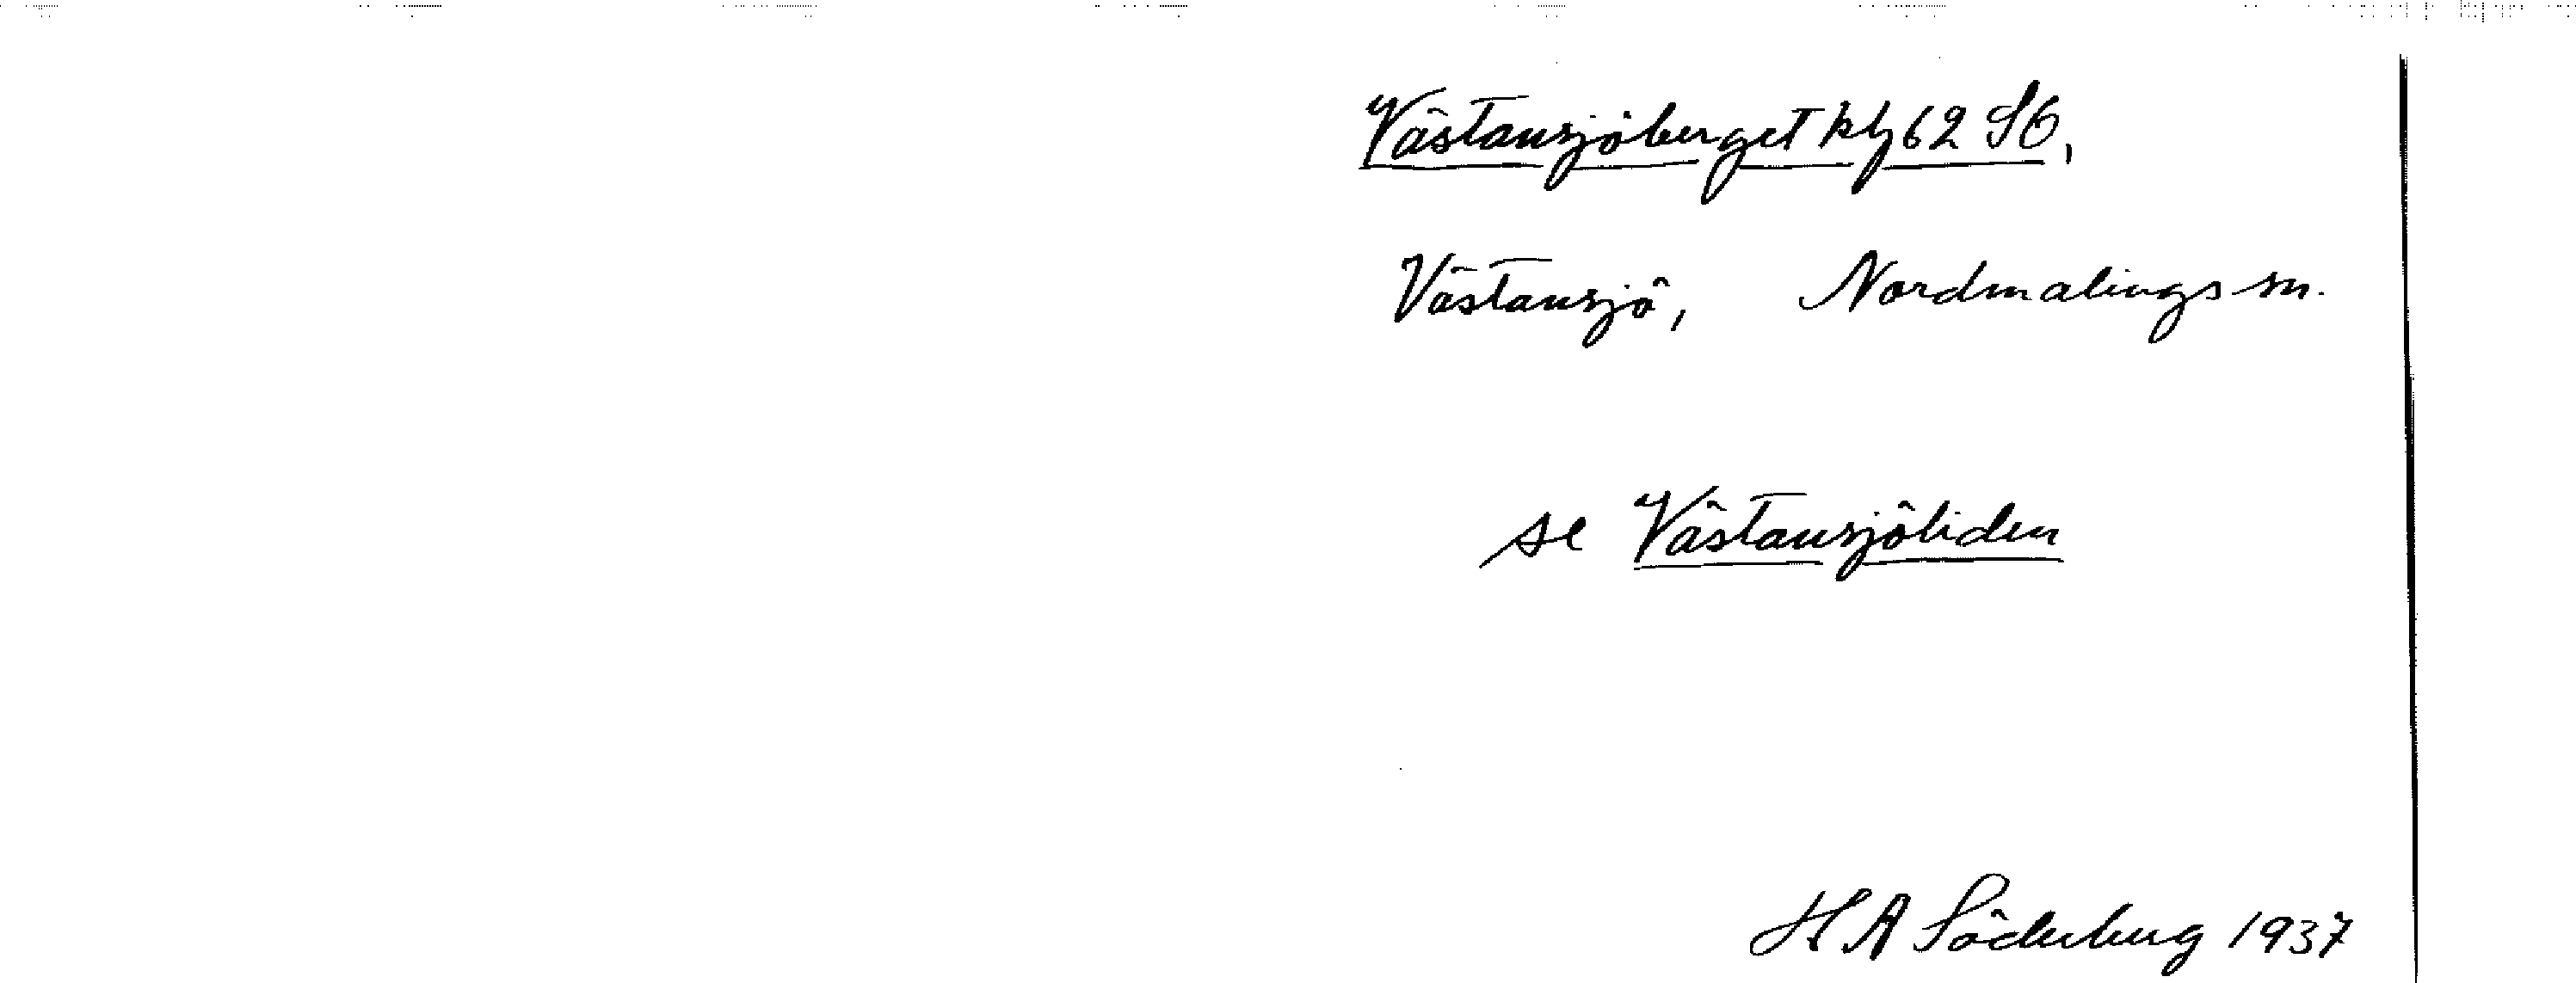 Västansjöberget kbl 62 SO,
Västansjö, Nordmalings sn.
se Västansjöliden
H A Söderberg 1937